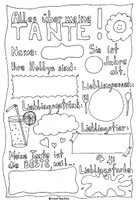 Alles über meine
TANTE!
Name:
Sie ist
Jahre
alt.
Ihre Hobbys sind:
Lieblingsessen:
Lieblingsgetränk:
Lieblingstier:
Meine Tante ist
die BESTE, weil...
Lieblingsfarbe: